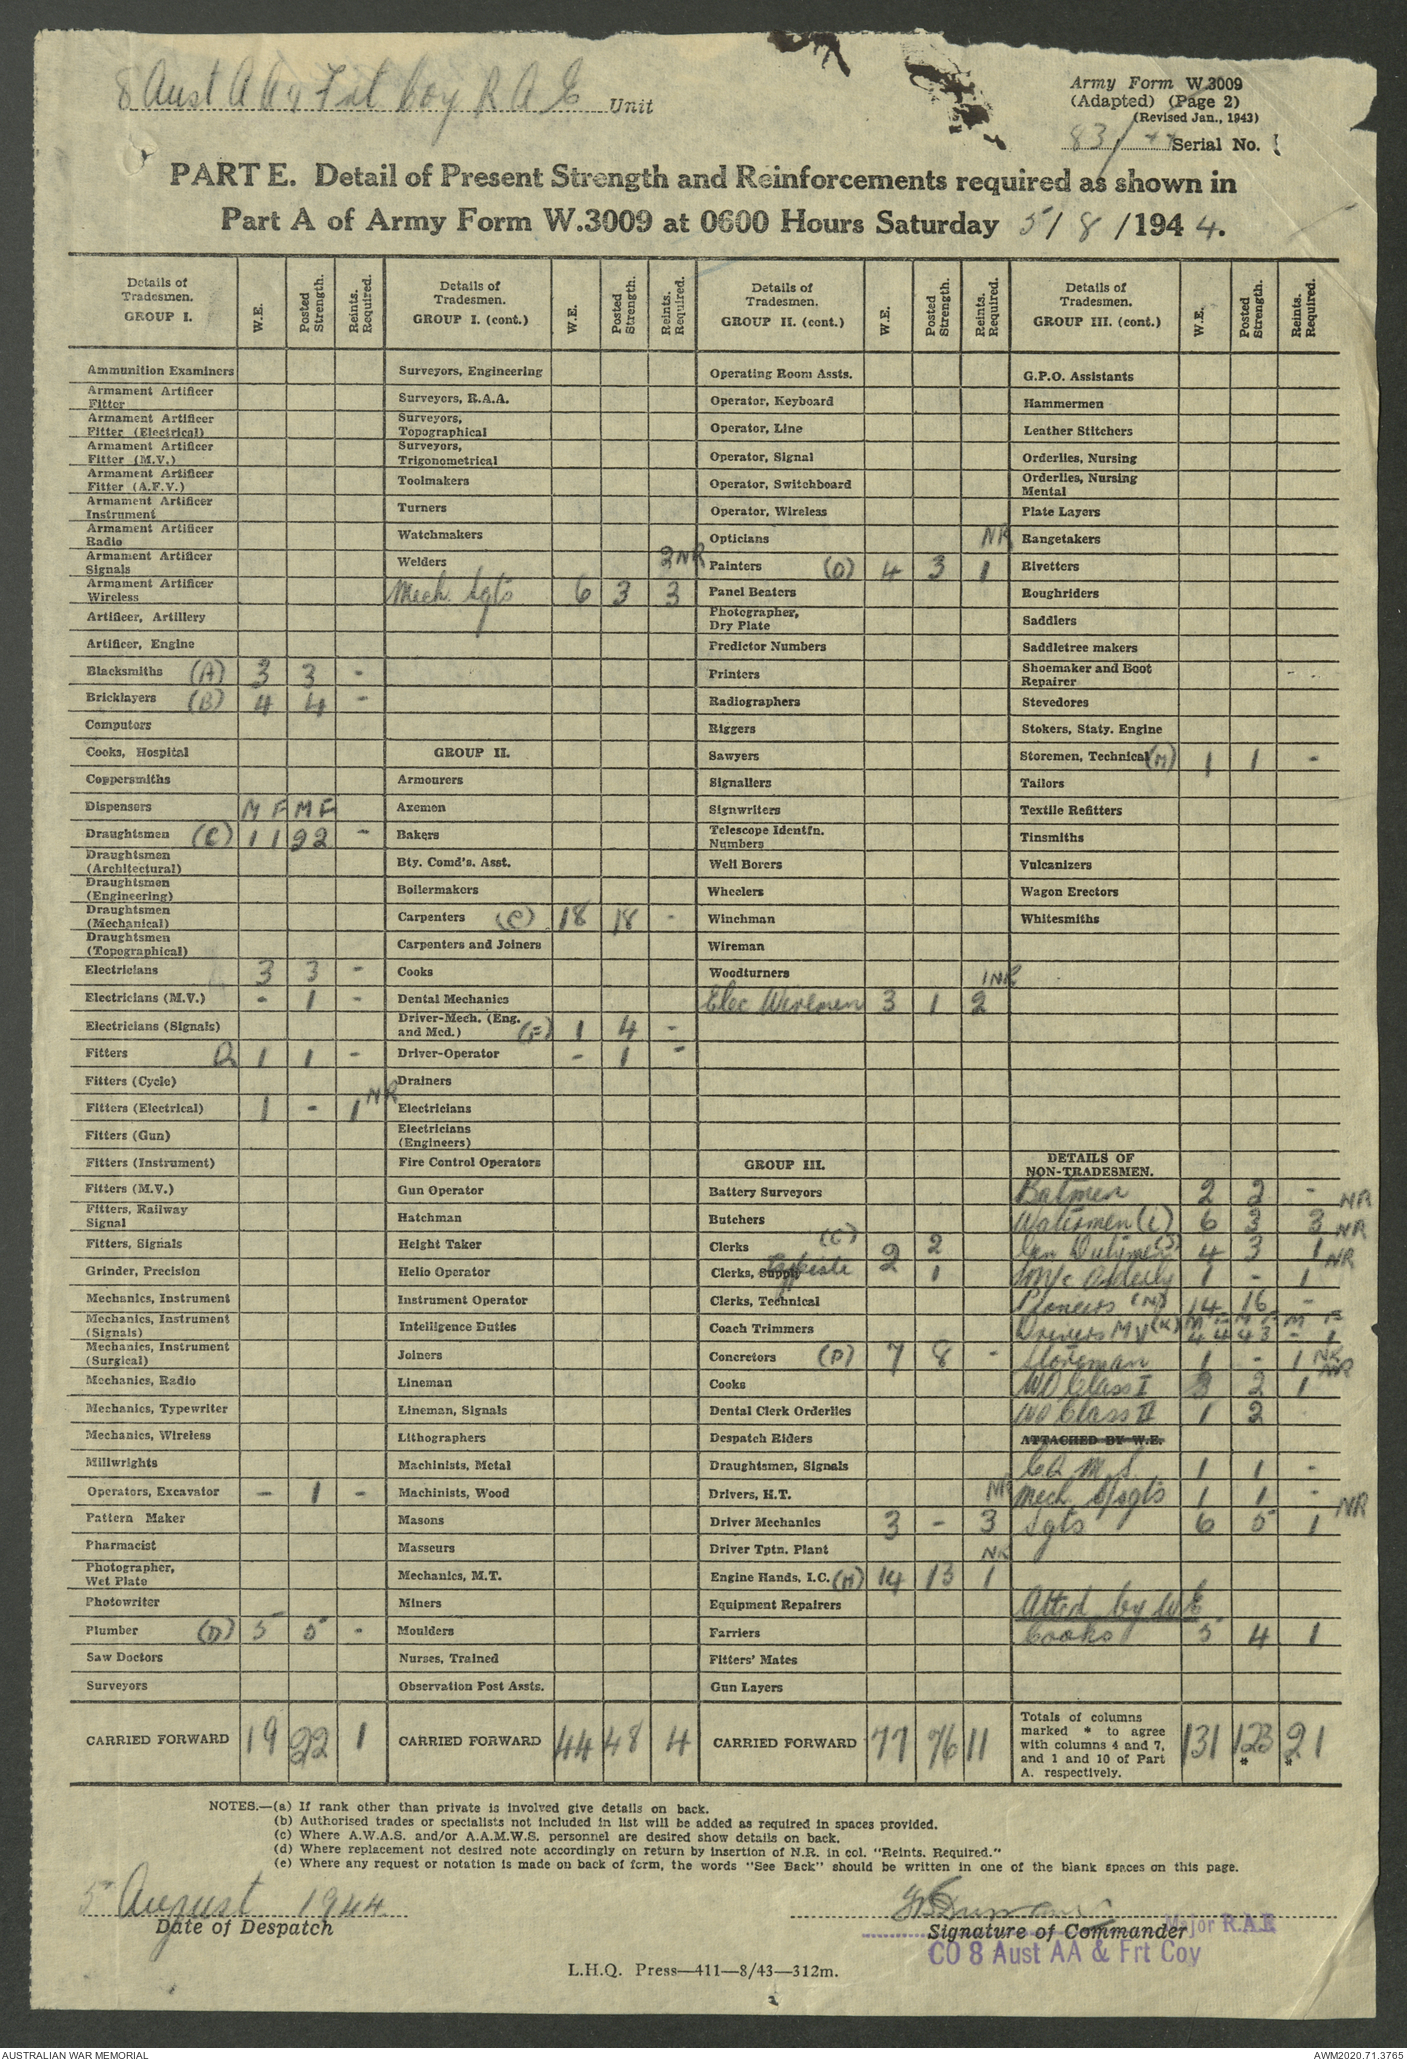 8 Aust A A & Frt Coy R A E Unit
Army Form W.3009
(Adapted) (Page 2)
(Revised Jan., 1943)
83/44 Serial No.
PART E. Detail of Present Strength and Reinforcements required as shown in
Part A of Army Form W.3009 at 0600 Hours Saturday 5/8/1944.
Details of Tradesmen. GROUP I. W.E. Posted Strength. Reints. Required.
Ammunition Examiners
Armament Artificer Fitter
Armament Artificer Fitter (Electrical)
Armament Artificer Fitter (M.V.)
Armament Artificer Fitter (A.F.V.)
Armament Artificer Instrument
Armament Artificer Radio
Armament Artificer Signals
Armament Artificer Wireless
Artificer, Artillery
Artificer, Engine
Blacksmiths (A) 3 3 -
Bricklayers (B) 4 4 -
Computors
Cooks, Hospital
Coppersmiths
Dispensers M F M F
Draughtsmen (C) 1 1 2 2 -
Draughtsmen (Architectural)
Draughtsmen (Engineering)
Draughtsmen (Mechanical)
Draughtsmen (Topographical)
Electricians 3 3 -
Electricians (M.V.) - 1 -
Electricians (Signals)
Fitters 1 1 -
Fitters (Cycle)
Fitters (Electrical) 1 - 1 NR
Fitters (Gun)
Fitters (Instrument)
Fitters (M.V.)
Fitters, Railway Signal
Fitters, Signals
Grinder, Precision
Mechanics, Instrument
Mechanics, Instrument (Signals)
Mechanics, Instrument (Surgical)
Mechanics, Radio
Mechanics, Typewriter
Mechanics, Wireless
Millwrights
Operators, Excavator - 1 -
Pattern Maker
Pharmacist
Photographer, Wet Plate
Photowriter
Plumber (D) 5 5 -
Saw Doctors
Surveyors
CARRIED FORWARD 19 22 1
Details of Tradesmen. GROUP I. (cont.) W.E. Posted Strength. Reints. Required.
Surveyors, Engineering
Surveyors, R.A.A.
Surveyors, Topographical
Surveyors, Trigonometrical
Toolmakers
Turners
Watchmakers
Welders 2NR
Mech. Sgts 6 3 3
GROUP II.
Armourers
Axemen
Bakers
Bty. Comd's. Asst.
Boilermakers
Carpenters (C) 18 18 -
Carpenters and Joiners
Cooks
Dental Mechanics
Driver-Mech. (Eng. and Med.) (F) 1 4 -
Driver-Operator - 1 -
Drainers
Electricians
Electricians (Engineers)
Fire Control Operators
Gun Operator
Hatchman
Height Taker
Helio Operator
Instrument Operator
Intelligence Duties
Joiners
Lineman
Lineman, Signals
Lithographers
Machinists, Metal
Machinists, Wood
Masons
Masseurs
Mechanics, M.T.
Miners
Moulders
Nurses, Trained
Observation Post Assts.
CARRIED FORWARD 44 48 4
Details of Tradesmen. GROUP II. (cont.) W.E. Posted Strength. Reints. Required.
Operating Room Assts.
Operator, Keyboard
Operator, Line
Operator, Signal
Operator, Switchboard
Operator, Wireless
Opticians NR
Painters (O) 4 3 1
Panel Beaters
Photographer, Dry Plate
Predictor Numbers
Printers
Radiographers
Riggers
Sawyers
Signallers
Signwriters
Telescope Identfn. Numbers
Well Borers
Wheelers
Winchman
Wireman
Woodturners 1NR
Elec Wiremen 3 1 2
GROUP III.
Battery Surveyors
Butchers
Clerks (G) 2 2
Clerks, Supply Typiste 1
Clerks, Technical
Coach Trimmers
Concretors (P) 7 8 -
Cooks
Dental Clerk Orderlies
Despatch Riders
Draughtsmen, Signals
Drivers, H.T. NR
Driver Mechanics 3 - 3
Driver Tptn. Plant NR
Engine Hands, I.C. (H) 14 13 1
Equipment Repairers
Farriers
Fitters' Mates
Gun Layers
CARRIED FORWARD 77 76 11
Details of Tradesmen. GROUP III. (cont.) W.E. Posted Strength. Reints. Required.
G.P.O. Assistants
Hammermen
Leather Stitchers
Orderlies, Nursing
Orderlies, Nursing Mental
Plate Layers
Rangetakers
Rivetters
Roughriders
Saddlers
Saddletree makers
Shoemaker and Boot Repairer
Stevedores
Stokers, Staty. Engine
Storemen, Technical (M) 1 1 -
Tailors
Textile Refitters
Tinsmiths
Vulcanizers
Wagon Erectors
Whitesmiths
DETAILS OF NON-TRADESMEN.
Batmen 2 2 - NR
Watermen (L) 6 3 3 NR
Gen Dutymen 4 3 1 NR
M/c Orderly 1 - 1
Pioneers (N) 14 16 -
M F M F M F
Drivers M V (K) 4 4 4 3 - 1
Storeman 1 - 1 NR
NR
WO Class I 3 2 1
WO Class II 1 2
ATTACHED BY W.E.
C Q M S 1 1 -
Mech S/Sgts 1 1 - NR
Sgts 6 5 1
Atted by W E
Cooks 5 4 1
Totals of columns marked * to agree with columns 4 and 7, and 1 and 10 of Part A. respectively. 131 123* 21*
NOTES.—(a) If rank other than private is involved give details on back.
(b) Authorised trades or specialists not included in list will be added as required in spaces provided.
(c) Where A.W.A.S. and/or A.A.M.W.S. personnel are desired show details on back.
(d) Where replacement not desired note accordingly on return by insertion of N.R. in col. "Reints. Required."
(e) Where any request or notation is made on back of form, the words "See Back" should be written in one of the blank spaces on this page.
5 August 1944
Date of Despatch
Signature of Commander
Major R.A.E
CO 8 Aust AA & Frt Coy
L.H.Q. Press—411—8/43—312m.
AUSTRALIAN WAR MEMORIAL
AWM2020.71.3765